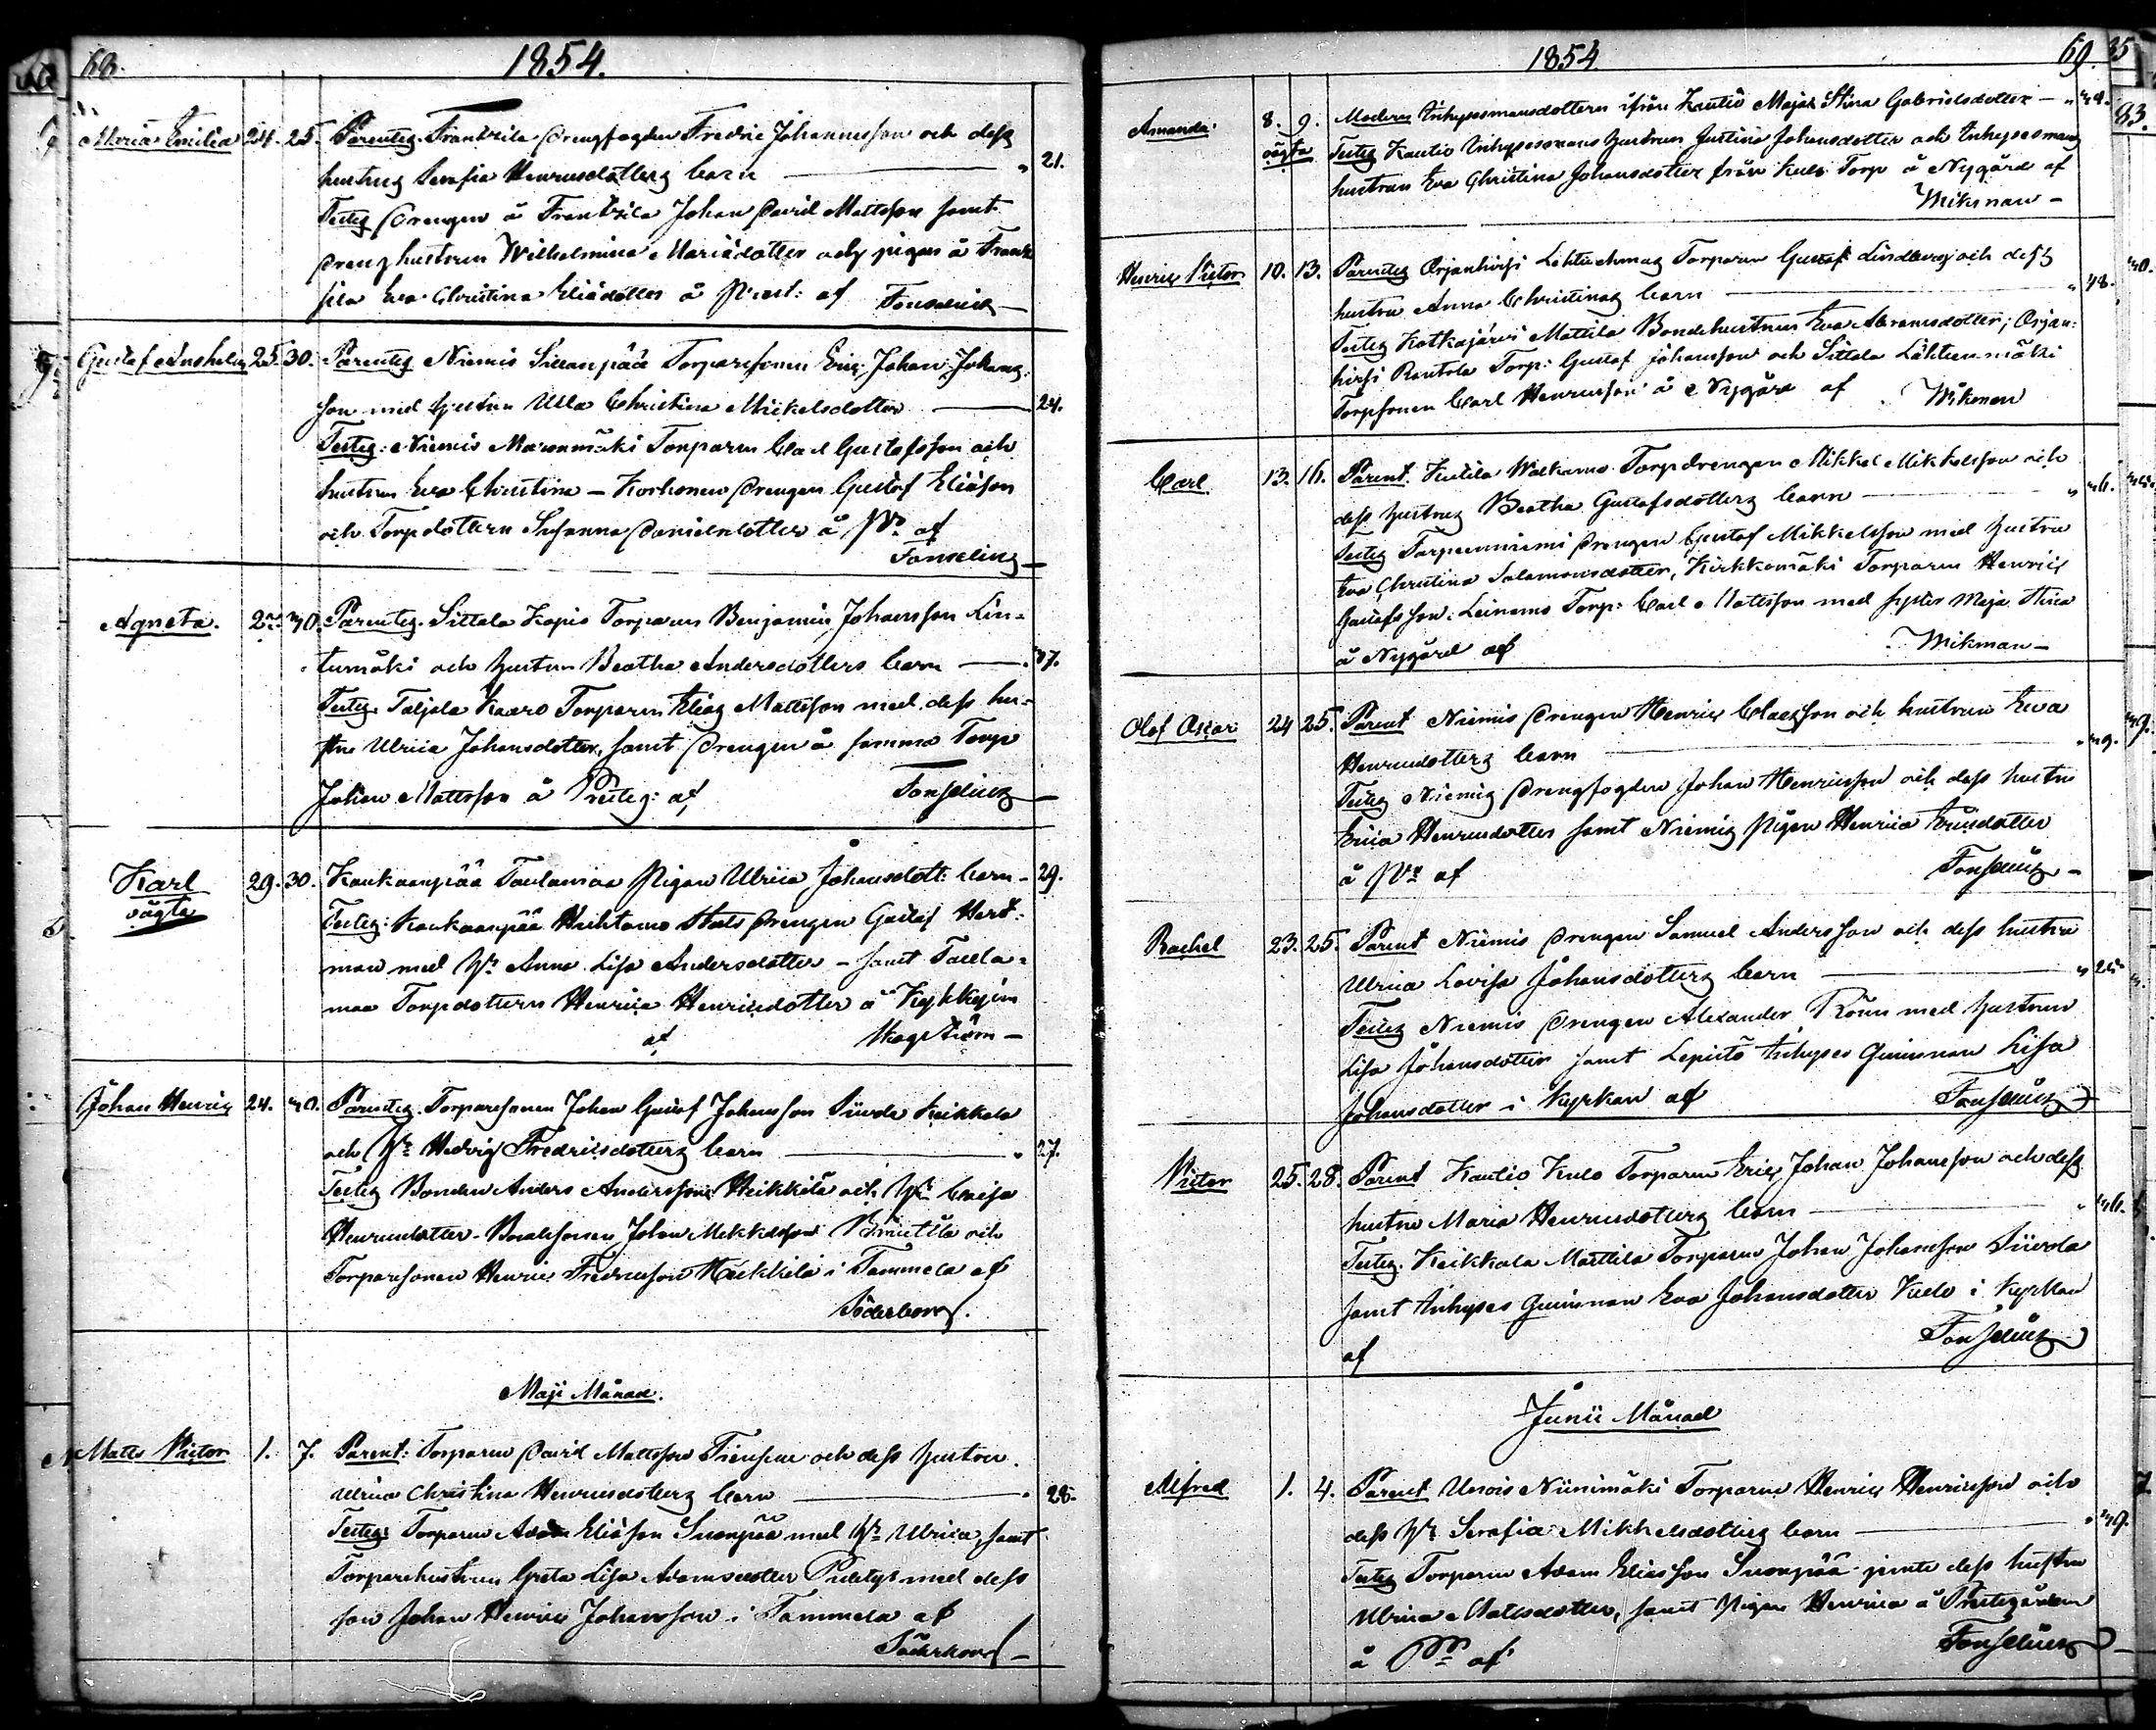 68.
1854.
Maria Emilia 24. 25. Parentes. Frantsila Drengfogden Fredric Johannesson och dess
hustrus Serafia Henricsdotters barn — 21.
Testes Drengen å Frantsila Johan David Mattsson samt
Dreng hustrun Wilhelmina Mariädotter och pigan å Frant
sila Eva Christina Eliädotter å Prest: af Fonselius —
Gustaf Anshelm 25. 30. Parentes Niemis Sillanpää Torparesonen Eric Johan Johans
son med hustru Ulla Christina Mickelsdotter — 24.
Testes: Niemis Maronmäki Torparen Carl Gustafsson och
hustrun Eva Christina — Korhonen Drengen Gustaf Eliäson
och Torpdottern Susanna Danielsdotter å Pr. af
Fonselius —
Agneta. 30. Parentes. Sittala Kopio Torparen Benjamin Johansson Lin-
tumäki och hustrun Beatha Andersdotters barn — 37.
Testes. Taljala Kaaro Torparen Elias Mattsson med dess hu-
stru Ulrica Johansdotter, samt Drengen å samma Torp
Johan Mattsson å Presteg: af Fonselius
Karl 29. 30. Kaukaanpää Taulamaa Pigan Ulrica Johansdott: barn — 29.
oägta
Testes: Kaukaanpää Huhtamo Drengen Gustaf Hert-
man med Hr Anna Lisa Andersdotter — samt Taula-
maa Torpdottern Henrica Henricsdotter å
af Hagström —
Johan Henric 24. 30. Parentes. Torparesonen Johan Gustaf Johansson Keikkala
och Hr Hedvig Fredricsdotters barn — 27.
Testes Bonden Anders Andersson Heikkilä och Hr Caisa
Henricsdotter — Bondesonen Johan Mikkelsson och
Torparesonen Henric Fredricsson Heikkilä i Tammela af
Söderborg.
Maji Månad.
Matts Victor 1. 7. Parent: Torparen David Mattsson och dess hustru
Ulrica Christina Henricsdotters barn — 28.
Testes: Torparen Adam Eliäson Suonpää med Hr Ulrica, samt
Torparehustrun Greta Lisa Adamsdotter med dess
son Johan Henric Johansson i Tammela af
Söderborg —
1854.
69.
Amanda 8. 9. Modren Inhysesmansdottern ifrån Kautio Maja Stina Gabrielsdotter —
oägta Testes Kautio Inhysesmans hustrun Justina Johansdotter och Inhysesmans
hustrun Eva Christina Johansdotter från Kulo Torp å Nygård af
Wikman —
83.
Henric Victor 10. 13. Parentes Orjanhirsi Torparen Gustaf Lindberg och dess
hustru Anna Christinas barn — 48.
Testes Kotkajärvi Mattila Bondehustrun Eva Abramsdotter; Orjan-
hirsi Rantala Torp: Gustaf Johansson och Sittala Lähteenmäki
Torpsonen Carl Henricsson å Nygård af Wikman
Carl 13. 16. Parent. Kutila Walkama Torpdrengen Mikkel Mikkelsson och
dess hustrus Beatha Gustafsdotters barn —
Testes Torpeenniemi Drengen Gustaf Mikkelsson med hustru
Eva Christina Salomonsdotter, Kirkkomäki Torparen Henric
Gustafsson: Leinamo Torp: Carl Mattsson med syster Maja Stina
å Nygård af Wikman —
Olof Oscar 24 25. Parent Niemis Drengen Henric Claesson och hustrun Ewa
Henricsdotters barn —
Testes Niemis Drengfogden Johan Henricsson och dess hustru
Erica Henricsdotter samt Niemis Pigan Henrica Ericsdotter
å Pr. af Fonselius —
Rachel 23. 25. Parent Niemis Drengen Samuel Andersson och dess hustru
Ulrica Lovisa Johansdotters barn —
Testes Niemis Drengen Alexander med hustrun
Lisa Johansdotter samt Lepistö Inhyses Qvinnan Lisa
Johansdotter i Kyrkan af Fonselius
Victor 25. 28. Parent Kautio Kulo Torparen Eric Johan Johansson och dess
hustru Maria Henricsdotters barn —
Testes. Keikkala Mattila Torparen Johan Johansson
samt Inhyses Qvinnan Eva Johansdotter Kulo i Kyrkan
af Fonselius
Junii Månad
Alfred 1. 4. Parent Urois Niinimäki Torparen Henric Henricsson och
dess Hr Serafia Mikkelsdotters barn —
Testes Torparen Adam Eliasson Suonpää jemte dess hustru
Ulrica Mattsdotter, samt Pigan Henrica å Prestegården
å Pr. af Fonselius —